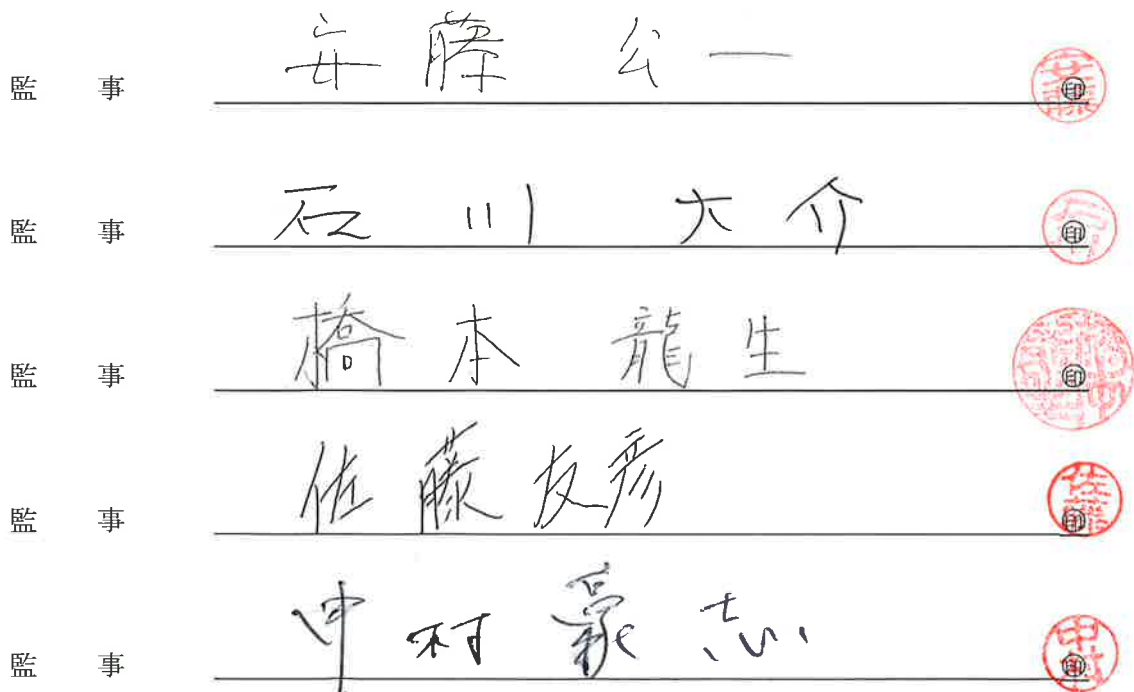 監事 安藤公一 ㊞
監事 石川大介 ㊞
監事 橋本龍生 ㊞
監事 佐藤友彦 ㊞
監事 中村豪志 ㊞